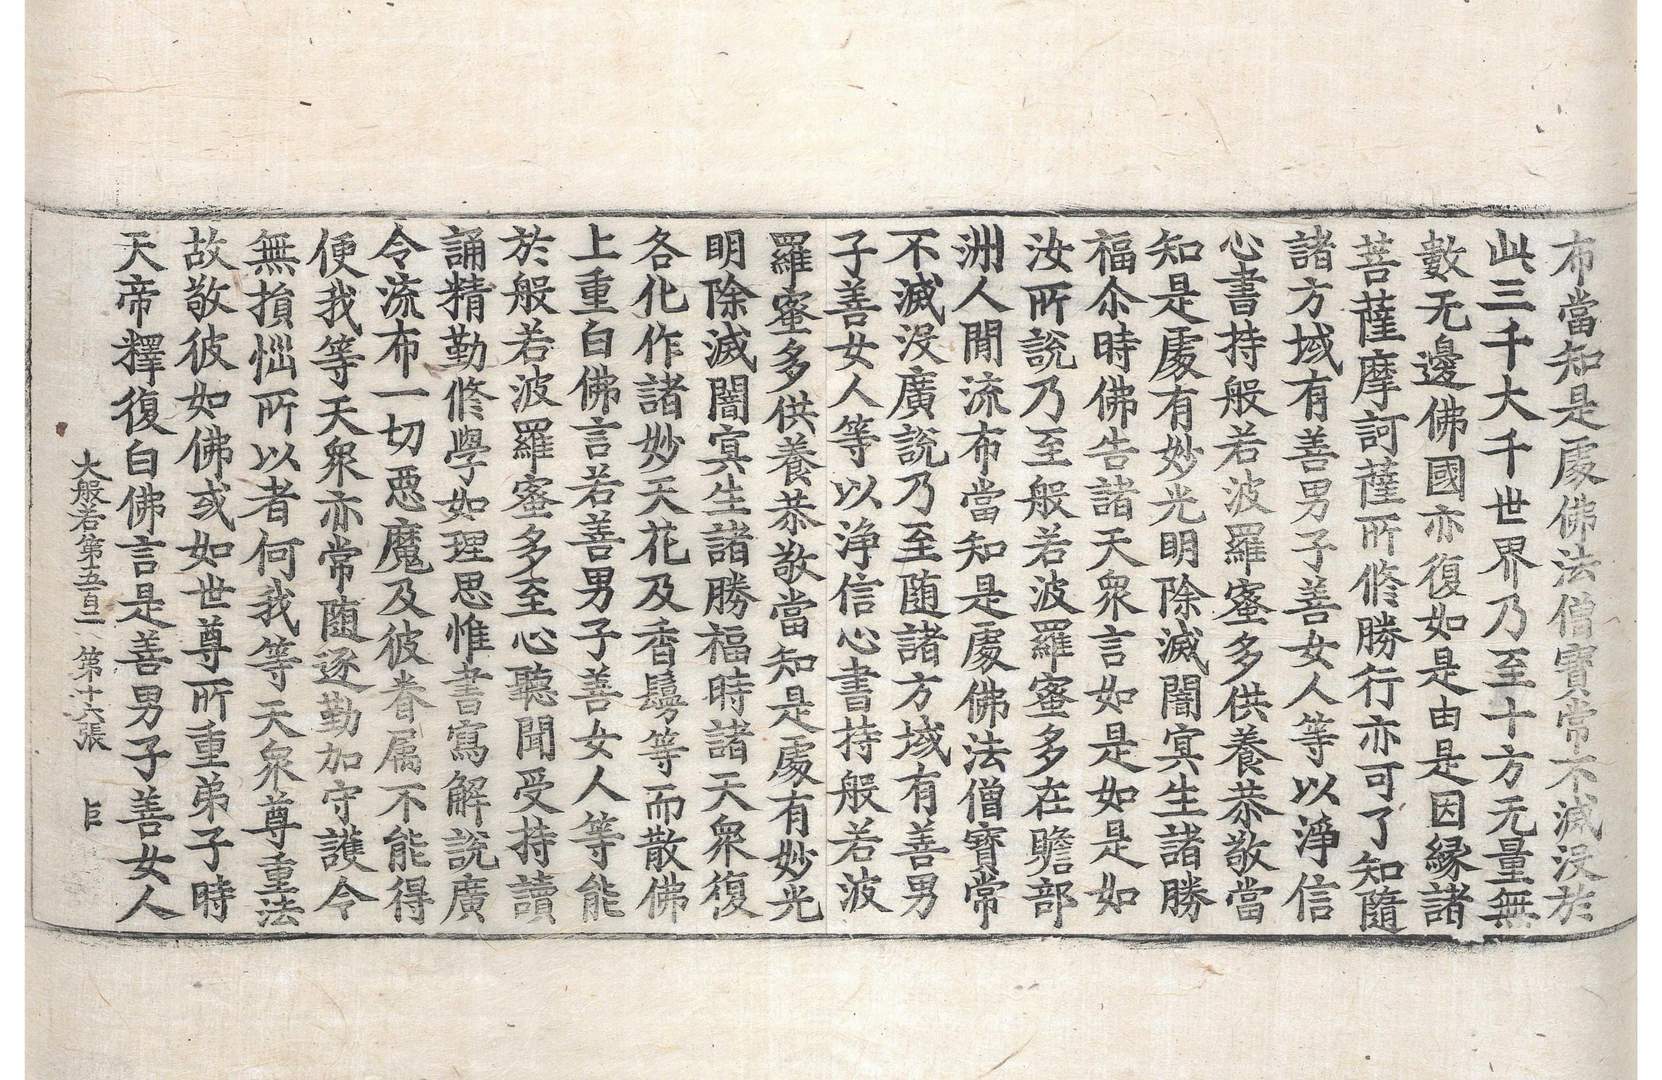 布當知是處佛法僧寶常不滅没於
此三千大千世界乃至十方无量無
數无邊佛國亦復如是由是因縁諸
菩薩摩訶薩所修勝行亦可了知隨
諸方域有善男子善女人等以淨信
心書持般若波羅蜜多供養恭敬當
知是處有妙光明除滅闇㝠生諸勝
福尒時佛告諸天衆言如是如是如
汝所說乃至般若波羅蜜多在贍部
洲人閒流布當知是處佛法僧寶常
不滅没廣說乃至隨諸方域有善男
子善女人等以淨信心書持般若波
羅蜜多供養恭敬當知是處有妙光
明除滅闇㝠生諸勝福時諸天衆復
各化作諸妙天花及香鬘等而散佛
上重白佛言若善男子善女人等能
於般若波羅蜜多至心聽聞受持讀
誦精勤修學如理思惟書寫解說廣
令流布一切惡魔及彼眷属不能得
便我等天衆亦常隨逐勤加守護令
無損惱所以者何我等天衆尊重法
故敬彼如佛或如世尊所重弟子時
天帝釋復白佛言是善男子善女人
大般若第五百二 第十六張